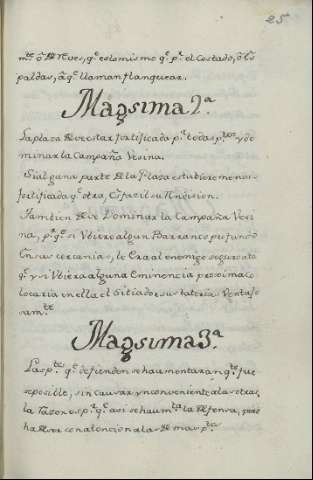 25
mte. ô de Reves, qe. es lo mismo qe. pr. el Costado, ô Es
paldas, â qe. llaman flanquear.
Magsima 2a.
La plaza deve estar fortificada pr. todas ptes. y do
minar la Campaña Vesina.
Si alguna parte de la Plaza estubiere menos
fortificada qe. otra, Es facil su Rendision.
Tambien deve Dominar la Campaña Vesi
na, pr. qe. si Ubiere algun Barranco profundo
En sus cercanias, le Era al enemigo seguro ata
qe. y si Ubiera alguna Eminencia procsima Co
locaria en ella el Sitiador sus baterias Ventajo
samte.
Magsima 3a.
Las ptes. qe. defienden se haumentaran qto. fue
re posible, sin causar ynconveniente a las otras,
la Razon es pr. qe. asi se haumta. la Defensa, pero
ha de ser con atencion a las demas ptes.